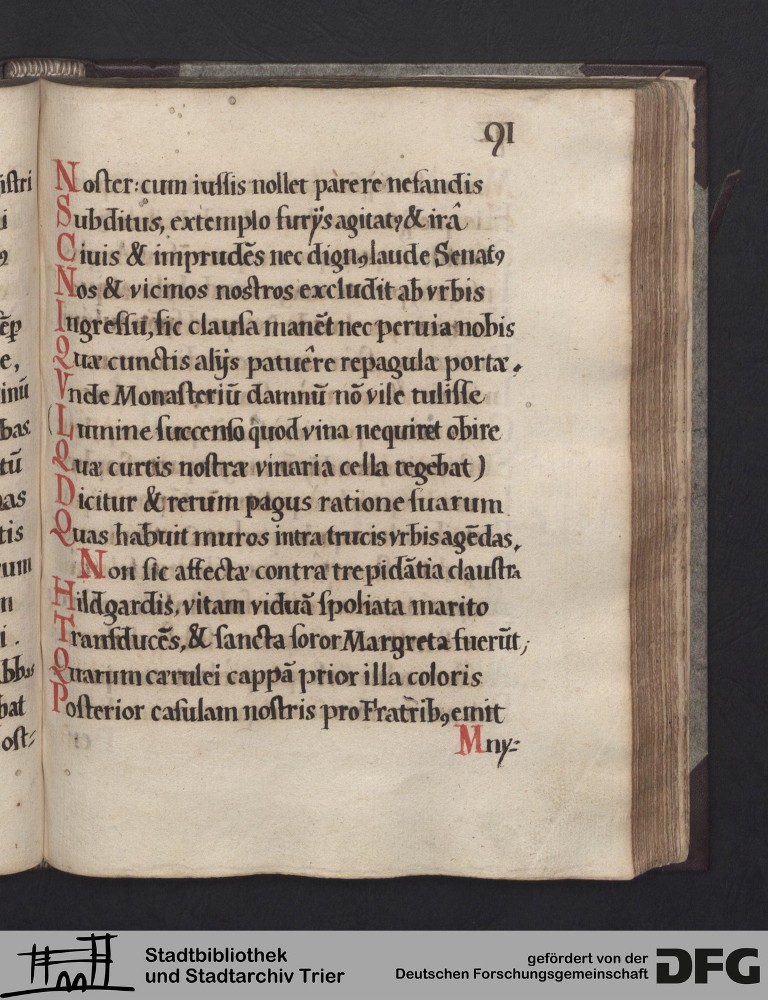 91
istri
Noster: cum iussis nollet parere nefandis
i
Subditus, extemplo furijs agitatꝯ & irâ
ꝯ
Ciuis & imprudēs nec dignꝯ laude Senatꝯ
Nos & vicinos nostros excludit ab vrbis
Ingressu, sic clausa manēt nec peruia nobis
e,
Quæ cunctis alijs patuêre repagula portæ.
inū
Vnde Monasteriū damnū nō vile tulisse
bas.
(Lumine succenso quod vina nequiret obire
tū
Quæ curtis nostræ vinaria cella tegebat)
nas
Dicitur & rerum pagus ratione suarum
tis
Quas habuit muros intra trucis vrbis agēdas.
um
Non sic affectæ contra trepidātia claustra
n
Hildgardis, vitam viduā spoliata marito
i.
Transducēs, & sancta soror Margreta fuerūt;
bbas
Quarum cærulei cappā prior illa coloris
bat
Posterior casulam nostris pro Fratribꝯ emit
ost=
Mny=
Stadtbibliothek
und Stadtarchiv Trier
gefördert von der
Deutschen Forschungsgemeinschaft
DFG